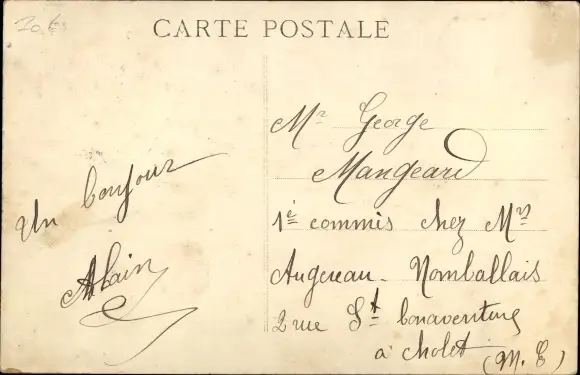 20 €
CARTE POSTALE
Un bonjour
Alain
Mr George
Mangeard
1é commis chez Mrs
Augereau - Nomballais
2 rue St bonaventure
à cholet (M. E)